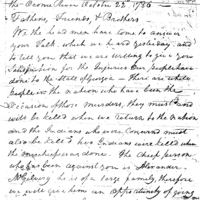 the Oconee River October 22 1786
Fathers, Friends & Brothers
We the head men have come to answer
your Talk, which we heard yesterday and
to tell you that we are willing to give you
Satisfaction for the Injuries our people have
done to the State of Georgia – there are white
people in the nation who have been the
Occasion of those murders, they must and
will be killed when we return to the nation
and the Indians who were concerned must
also be killed two Indians were killed when
the mischief was done. The Chief person
who has been against you is Alexander
McGillivray he is of a large family, therefore
we will give him an opportunity of going